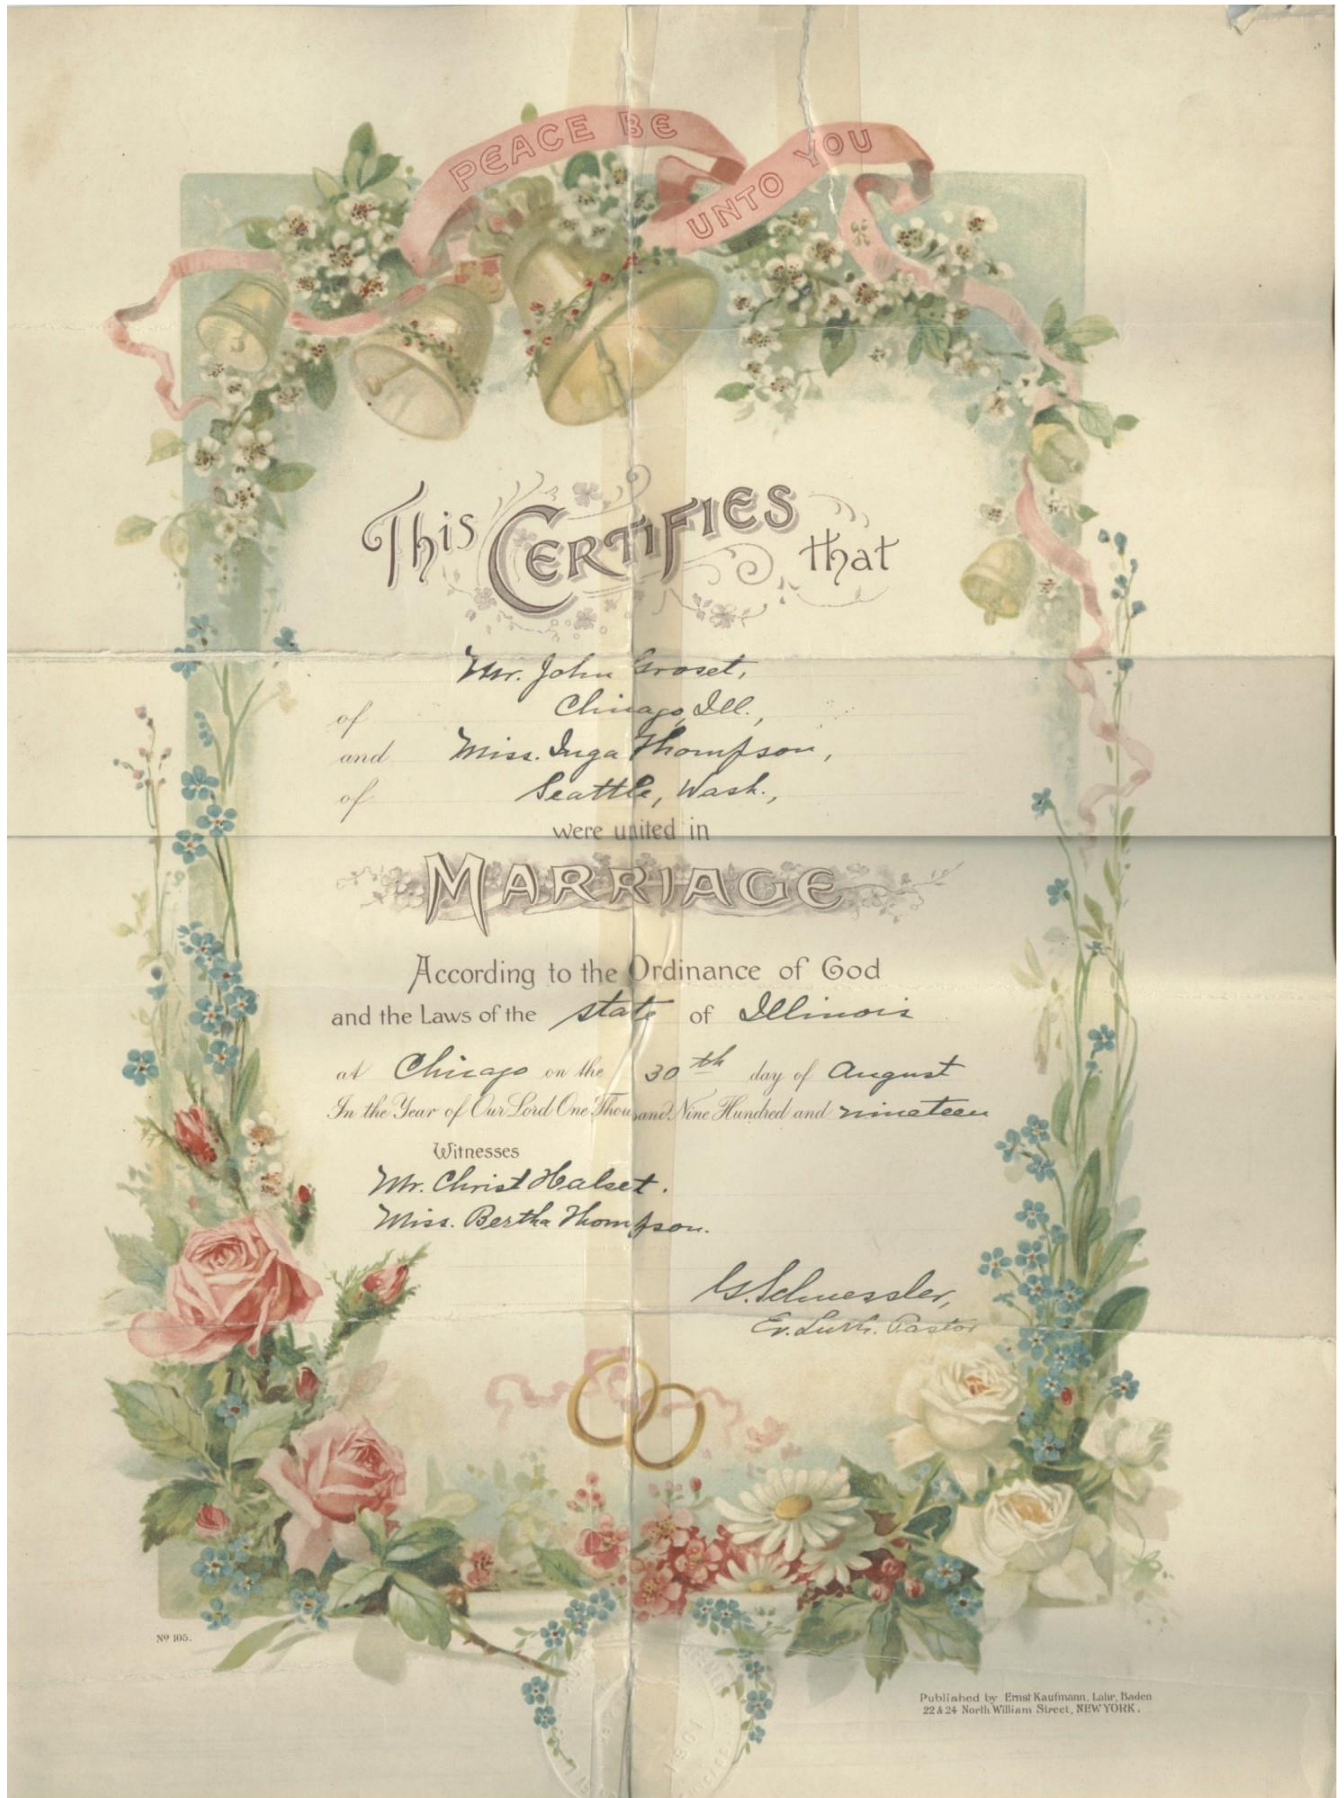 PEACE BE
UNTO YOU
This CERTIFIES that
Mr. John Groset,
of Chicago, Ill.,
and Miss. Inga Thompson,
of Seattle, Wash.,
were united in
MARRIAGE
According to the Ordinance of God
and the Laws of the state of Illinois
at Chicago on the 30th day of August
In the Year of Our Lord One Thousand Nine Hundred and nineteen
Witnesses
Mr. Christ Halset.
Miss. Bertha Thompson.
G. Schuessler,
Ev. Luth. Pastor
No 105.
Published by Ernst Kaufmann, Lahr, Baden
22 & 24 North William Street, NEW YORK.